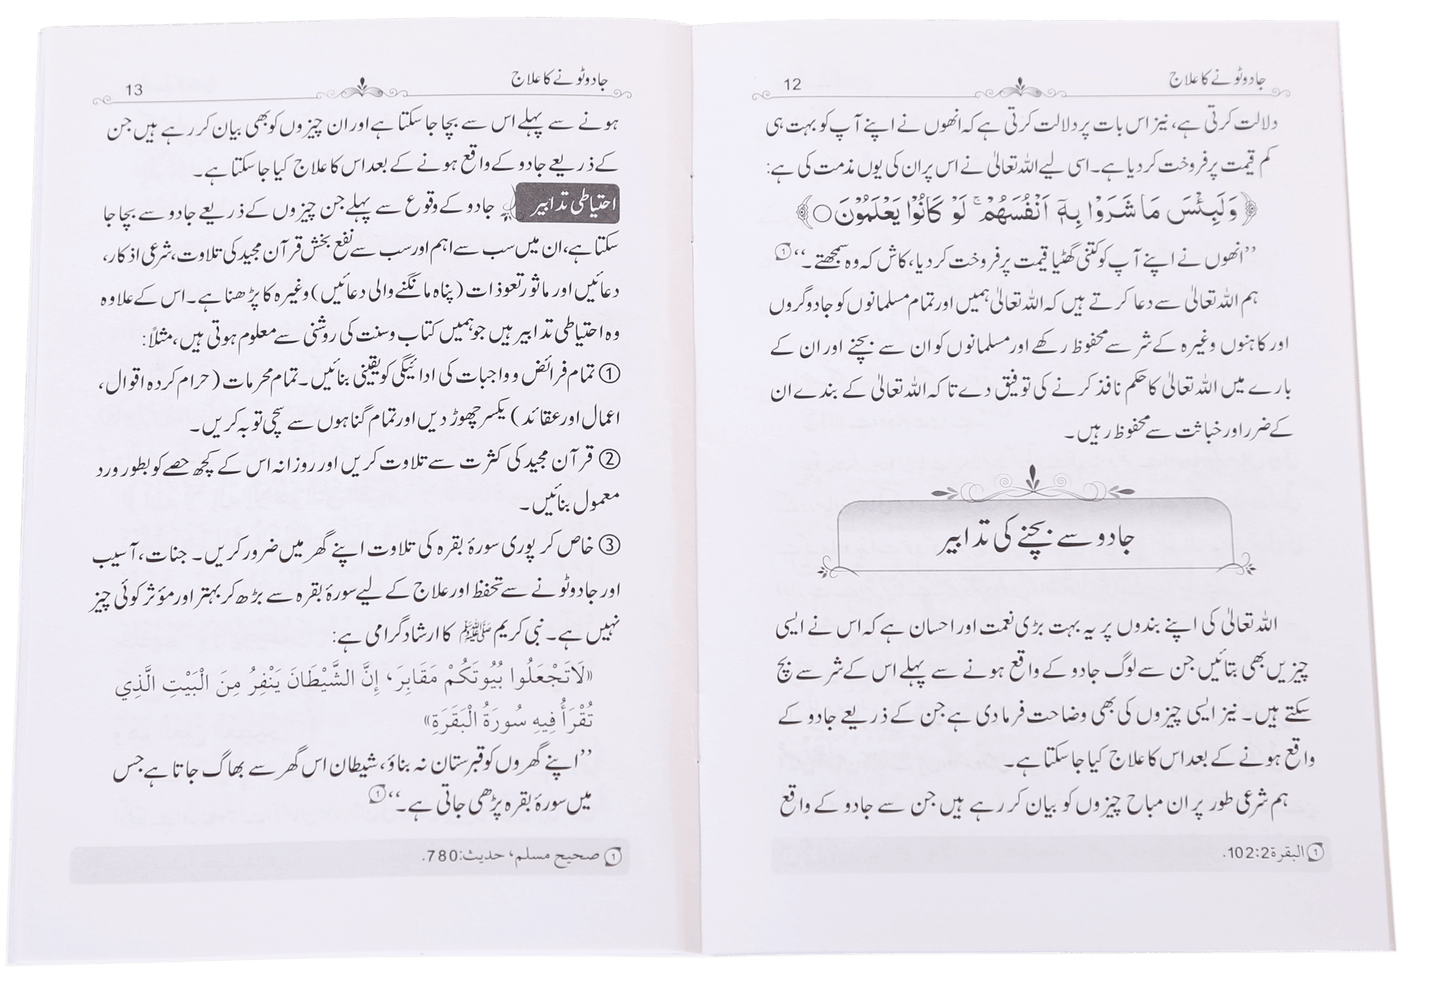 جادو ٹونے کا علاج 12
دلالت کرتی ہے، نیز اس بات پر دلالت کرتی ہے کہ انھوں نے اپنے آپ کو بہت ہی
کم قیمت پر فروخت کر دیا ہے۔ اسی لیے اللہ تعالیٰ نے اس پر ان کی یوں مذمت کی ہے:
﴿وَلَبِئْسَ مَا شَرَوْا بِهٖٓ اَنْفُسَهُمْ ۚ لَوْ كَانُوْا يَعْلَمُوْنَ○﴾
’’انھوں نے اپنے آپ کو کتنی گھٹیا قیمت پر فروخت کر دیا، کاش کہ وہ سمجھتے۔‘‘①
ہم اللہ تعالیٰ سے دعا کرتے ہیں کہ اللہ تعالیٰ ہمیں اور تمام مسلمانوں کو جادوگروں
اور کاہنوں وغیرہ کے شر سے محفوظ رکھے اور مسلمانوں کو ان سے بچنے اور ان کے
بارے میں اللہ تعالیٰ کا حکم نافذ کرنے کی توفیق دے تاکہ اللہ تعالیٰ کے بندے ان
کے ضرر اور خباثت سے محفوظ رہیں۔
جادو سے بچنے کی تدابیر
اللہ تعالیٰ کی اپنے بندوں پر یہ بہت بڑی نعمت اور احسان ہے کہ اس نے ایسی
چیزیں بھی بتائیں جن سے لوگ جادو کے واقع ہونے سے پہلے اس کے شر سے بچ
سکتے ہیں۔ نیز ایسی چیزوں کی بھی وضاحت فرما دی ہے جن کے ذریعے جادو کے
واقع ہونے کے بعد اس کا علاج کیا جا سکتا ہے۔
ہم شرعی طور پر ان مباح چیزوں کو بیان کر رہے ہیں جن سے جادو کے واقع
① البقرة 102:2.
جادو ٹونے کا علاج 13
ہونے سے پہلے اس سے بچا جا سکتا ہے اور ان چیزوں کو بھی بیان کر رہے ہیں جن
کے ذریعے جادو کے واقع ہونے کے بعد اس کا علاج کیا جا سکتا ہے۔
احتیاطی تدابیر جادو کے وقوع سے پہلے جن چیزوں کے ذریعے جادو سے بچا جا
سکتا ہے، ان میں سب سے اہم اور سب سے نفع بخش قرآن مجید کی تلاوت، شرعی اذکار،
دعائیں اور ماثور تعوذات (پناہ مانگنے والی دعائیں) وغیرہ کا پڑھنا ہے۔ اس کے علاوہ
وہ احتیاطی تدابیر ہیں جو ہمیں کتاب وسنت کی روشنی سے معلوم ہوتی ہیں، مثلاً:
① تمام فرائض و واجبات کی ادائیگی کو یقینی بنائیں۔ تمام محرمات (حرام کردہ اقوال،
اعمال اور عقائد) یکسر چھوڑ دیں اور تمام گناہوں سے سچی توبہ کریں۔
② قرآن مجید کی کثرت سے تلاوت کریں اور روزانہ اس کے کچھ حصے کو بطور ورد
معمول بنائیں۔
③ خاص کر پوری سورۂ بقرہ کی تلاوت اپنے گھر میں ضرور کریں۔ جنات، آسیب
اور جادو ٹونے سے تحفظ اور علاج کے لیے سورۂ بقرہ سے بڑھ کر بہتر اور مؤثر کوئی چیز
نہیں ہے۔ نبی کریم ﷺ کا ارشاد گرامی ہے:
«لَاتَجْعَلُوا بُيُوتَكُمْ مَقَابِرَ، إِنَّ الشَّيْطَانَ يَنْفِرُ مِنَ الْبَيْتِ الَّذِي
تُقْرَأُ فِيهِ سُورَةُ الْبَقَرَةِ»
’’اپنے گھروں کو قبرستان نہ بناؤ، شیطان اس گھر سے بھاگ جاتا ہے جس
میں سورۂ بقرہ پڑھی جاتی ہے۔‘‘①
① صحیح مسلم، حدیث:780.